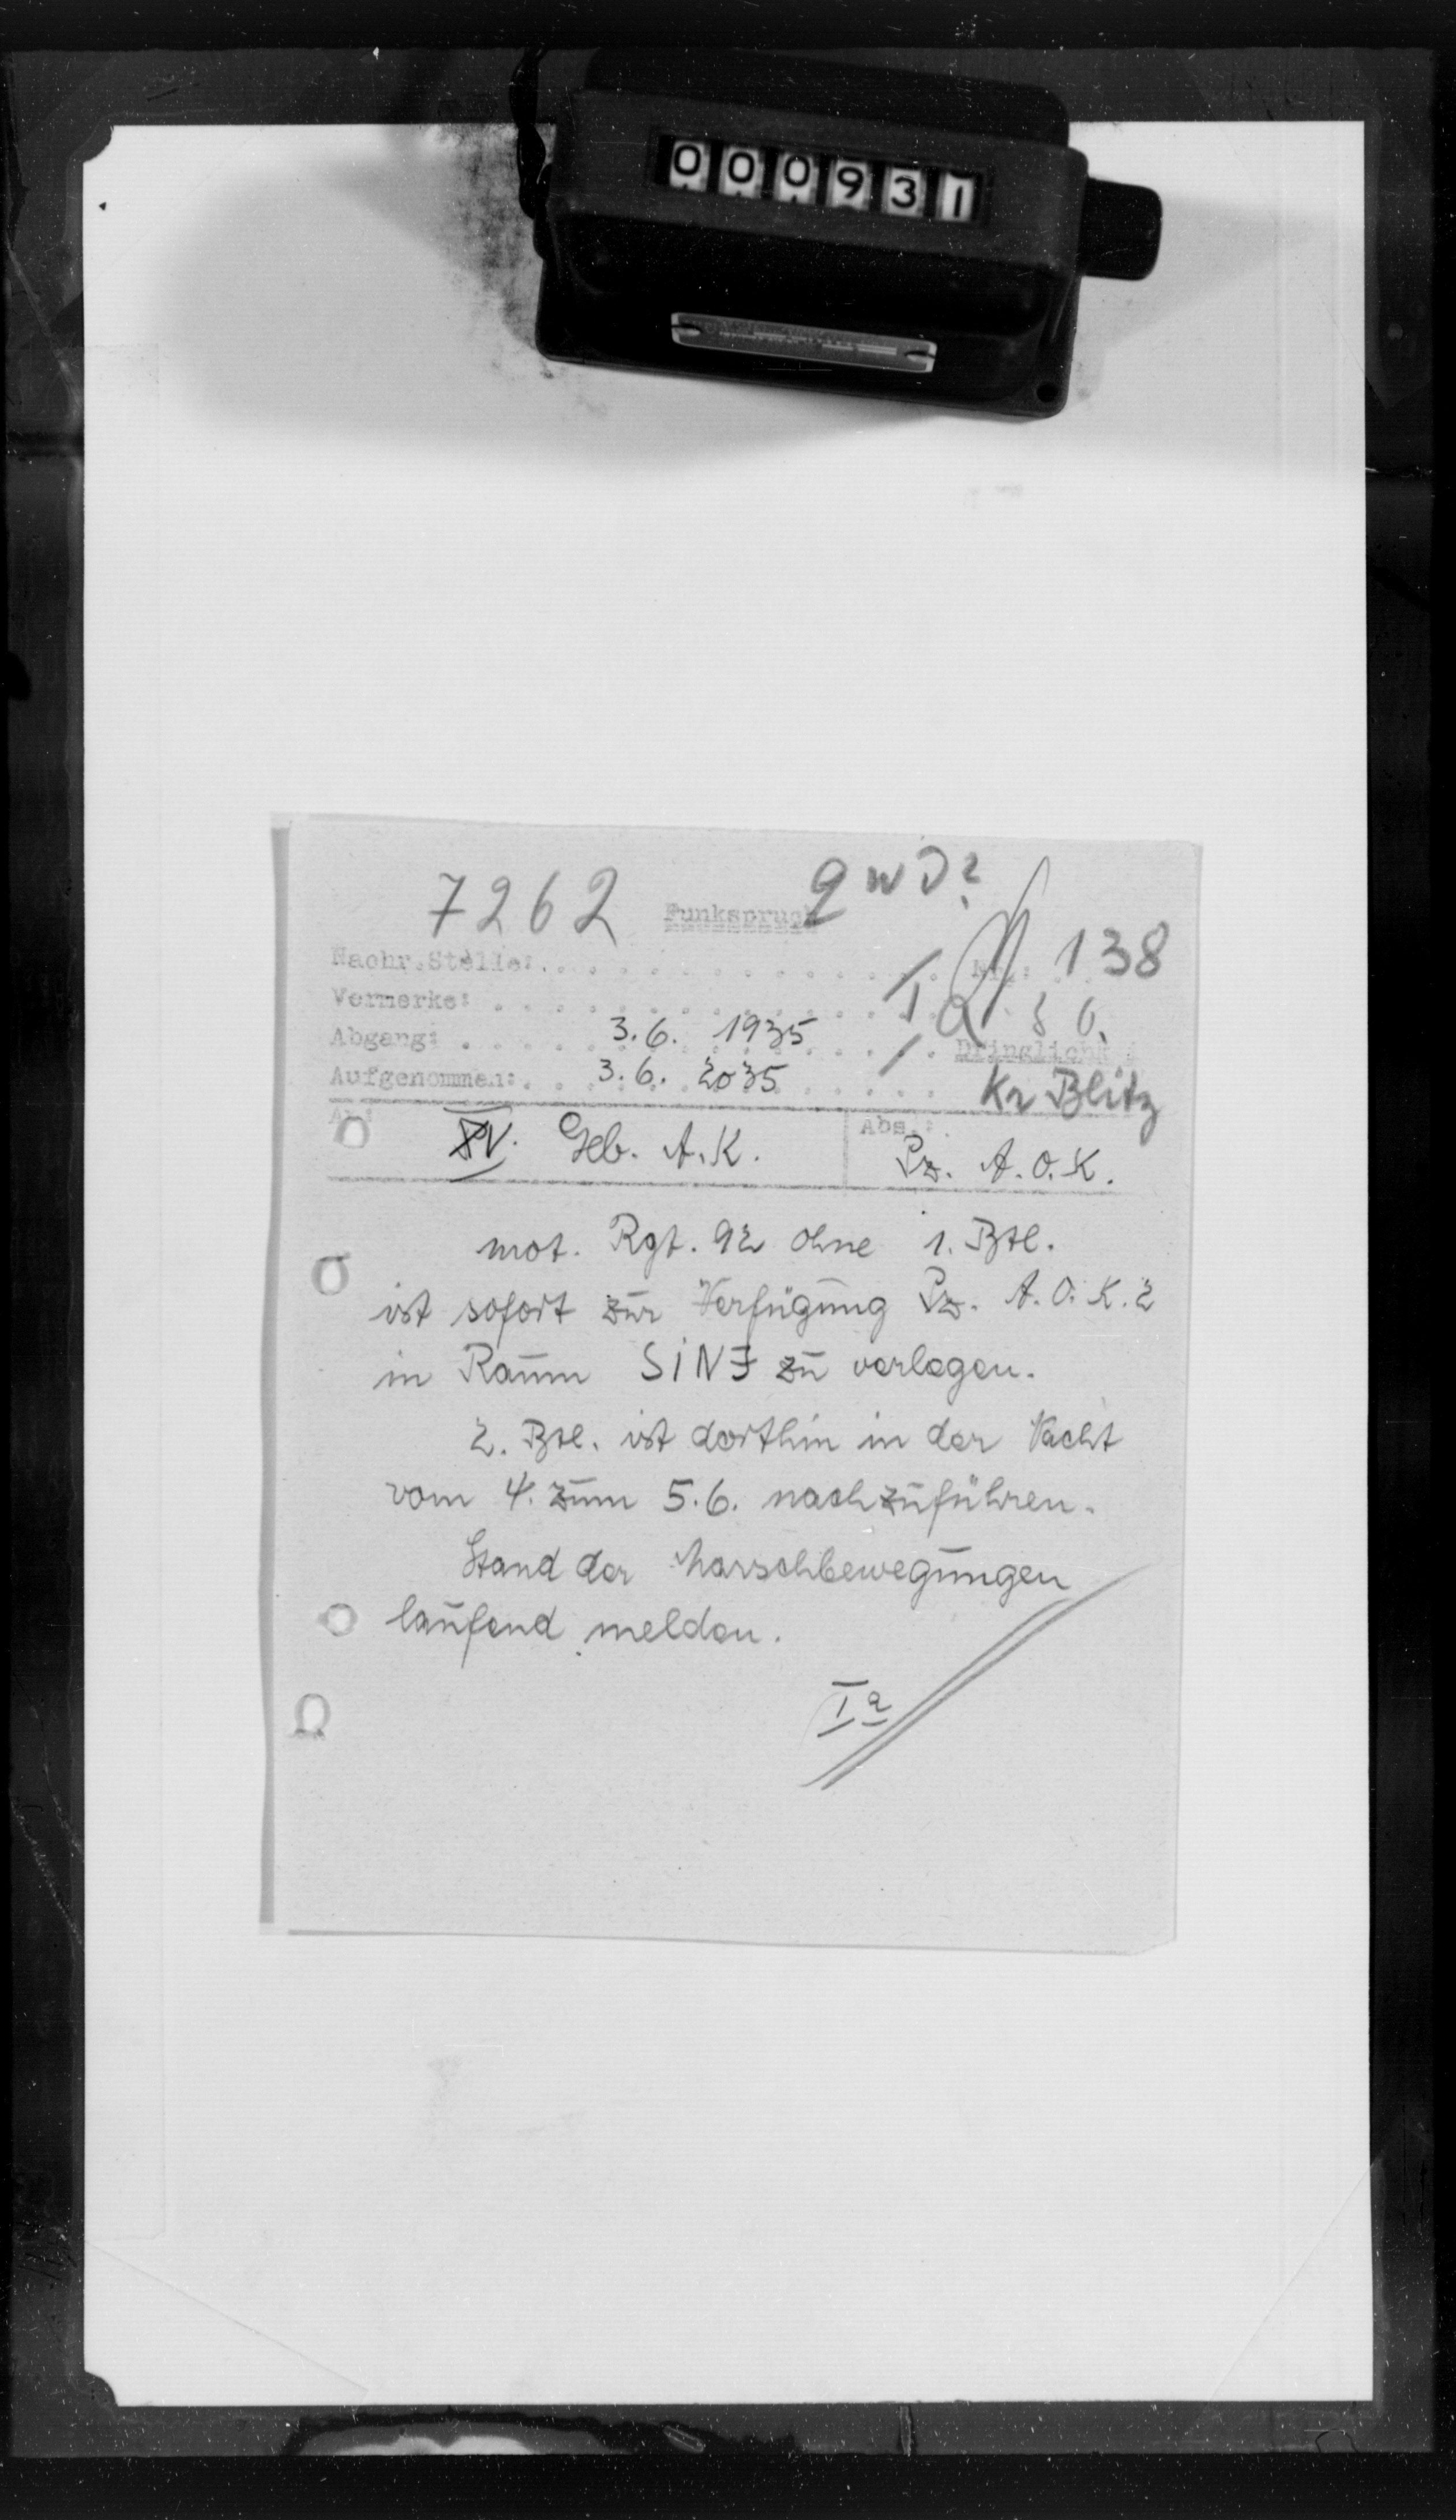 000931
7262 Funkspruch
Nachr.Stelle: Nr.: 138
Vermerke: Ia
Abgang: 3.6. 1935 Dringlich
Aufgenommen: 3.6. 2035 Kr Blitz
An: XV. Geb. A.K. Abs.: Pz. A.O.K.
mot. Rgt. 92 ohne 1. Btl.
ist sofort zur Verfügung Pz. A.O.K. 2
in Raum SINJ zu verlegen.
2. Btl. ist dorthin in der Nacht
vom 4. zum 5.6. nachzuführen.
Stand der Marschbewegungen
laufend melden.
Ia